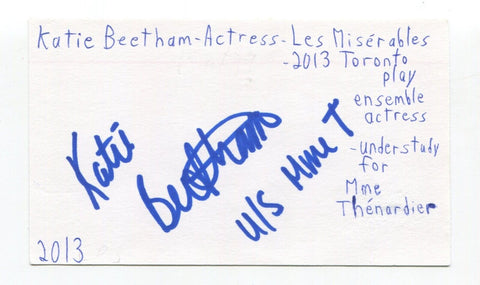 Katie Beetham-Actress-Les Misérables
-2013 Toronto
play
ensemble
actress
-understudy
for
Mme
Thénardier
Katie
Beetham
u/s Mme T
2013